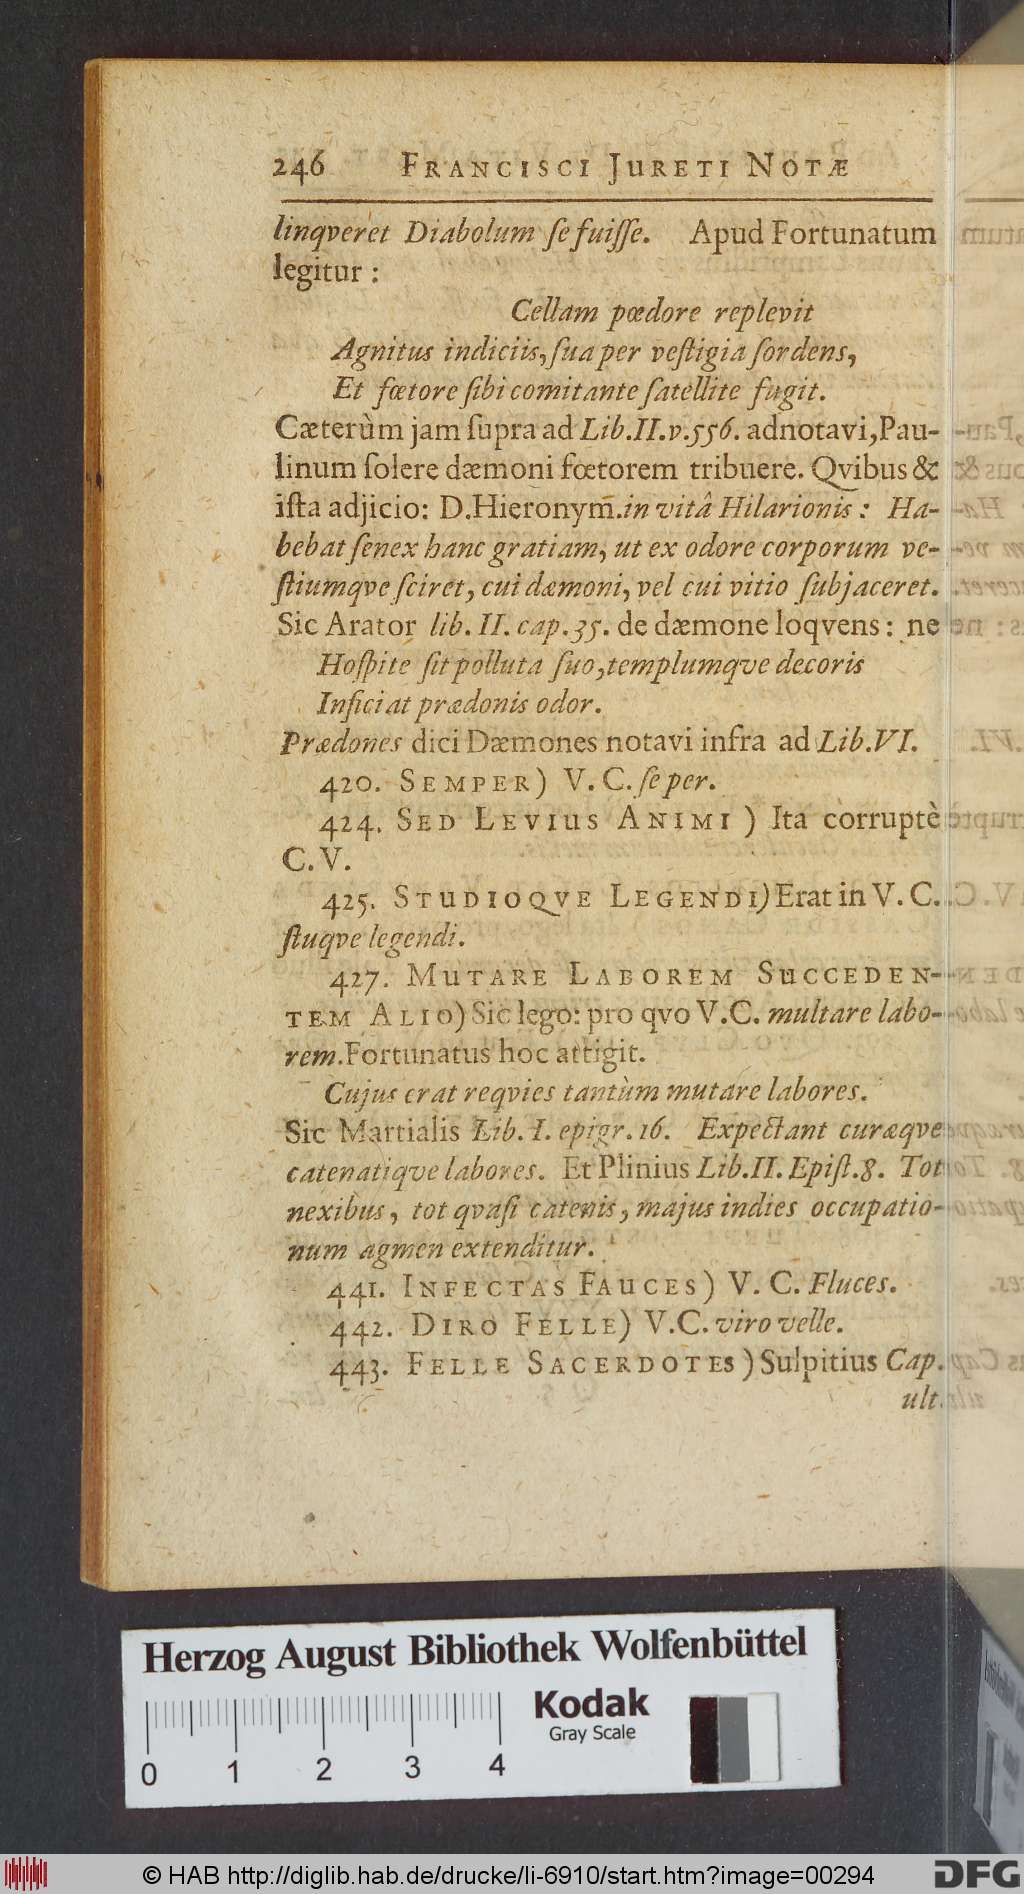 246 FRANCISCI JURETI NOTÆ
linqveret Diabolum ſe fuiſſe. Apud Fortunatum
legitur :
Cellam pœdore replevit
Agnitus indiciis, ſua per veſtigia ſordens,
Et fœtore ſibi comitante ſatellite fugit.
Cæterùm jam ſupra ad Lib.II.v.556. adnotavi, Pau-
linum ſolere dæmoni fœtorem tribuere. Qvibus &
iſta adjicio: D.Hieronym̃.in vitâ Hilarionis : Ha-
bebat ſenex hanc gratiam, ut ex odore corporum ve-
ſtiumqve ſciret, cui dæmoni, vel cui vitio ſubjaceret.
Sic Arator lib. II. cap.35. de dæmone loqvens : ne
Hoſpite ſit polluta ſuo, templumqve decoris
Inficiat prædonis odor.
Prædones dici Dæmones notavi infra ad Lib.VI.
420. SEMPER) V. C. ſe per.
424. SED LEVIUS ANIMI ) Ita corruptè
C. V.
425. STUDIOQVE LEGENDI) Erat in V. C.
ſtuqve legendi.
427. MUTARE LABOREM SUCCEDEN-
TEM ALIO) Sic lego: pro qvo V.C. multare labo-
rem. Fortunatus hoc attigit.
Cujus erat reqvies tantùm mutare labores.
Sic Martialis Lib. I. epigr. 16. Expectant curæqve
catenatiqve labores. Et Plinius Lib.II. Epiſt.8. Tot
nexibus, tot qvaſi catenis, majus indies occupatio-
num agmen extenditur.
441. INFECTAS FAUCES) V. C. Fluces.
442. DIRO FELLE) V.C. viro velle.
443. FELLE SACERDOTES ) Sulpitius Cap.
ult.
Herzog August Bibliothek Wolfenbüttel
Kodak
Gray Scale
0 1 2 3 4
© HAB http://diglib.hab.de/drucke/li-6910/start.htm?image=00294
DFG